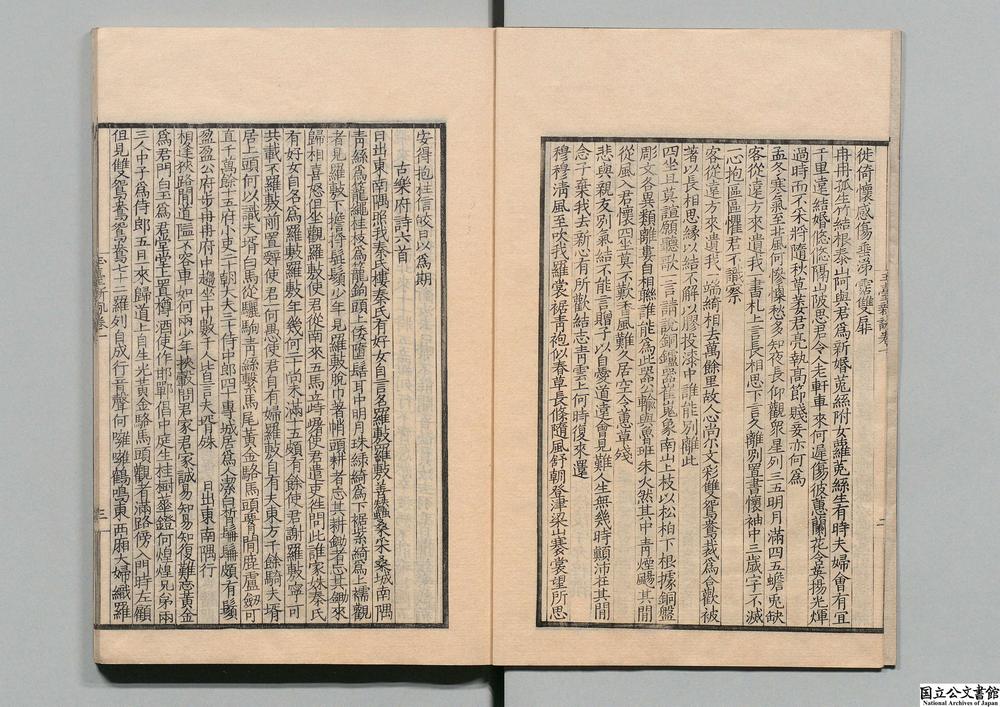 徙倚懷感傷垂涕霑雙扉
冉冉孤生竹結根泰山阿與君為新婚菟絲附女蘿菟絲生有時夫婦會有宜
千里遠結婚悠悠隔山陂思君令人老軒車來何遲傷彼蕙蘭花含英揚光輝
過時而不采將隨秋草萎君亮執高節賤妾亦何為
孟冬寒氣至北風何慘慄愁多知夜長仰觀衆星列三五明月滿四五蟾兔缺
客從遠方來遺我一書札上言長相思下言久離別置書懷袖中三歲字不滅
一心抱區區懼君不識察
客從遠方來遺我一端綺相去萬餘里故人心尚尓文彩雙鴛鴦裁為合歡被
著以長相思緣以結不解以膠投漆中誰能別離此
四坐且莫諠願聽歌一言請說銅鑪器崔嵬象南山上枝以松柏下根據銅盤
彫文各異類離婁自相聯誰能為此器公輸與魯班朱火然其中青煙颺其間
從風入君懷四坐莫不歎香風難久居空令蕙草殘
悲與親友別氣結不能言贈子以自愛道遠會見難人生無幾時顛沛在其間
念子棄我去新心有所歡結志青雲上何時復來還
穆穆清風至吹我羅裳裾青袍似春草長條隨風舒朝登津梁山褰裳望所思
安得抱柱信皎日以為期
古樂府詩六首
日出東南隅照我秦氏樓秦氏有好女自言名羅敷羅敷善蠶桑采桑城南隅
青絲為籠繩桂枝為籠鉤頭上倭墮髻耳中明月珠緑綺為下裾紫綺為上襦觀
者見羅敷下擔捋髭鬚少年見羅敷脫巾著帩頭耕者忘其耕鋤者忘其鋤來
歸相喜怒但坐觀羅敷使君從南來五馬立踟躕使君遣吏往問此誰家姝秦氏
有好女自名為羅敷羅敷年幾何二十尚未滿十五頗有餘使君謝羅敷寧可
共載不羅敷前置辭使君一何愚使君自有婦羅敷自有夫東方千餘騎夫壻
居上頭何以識夫壻白馬從驪駒青絲繫馬尾黃金絡馬頭腰間鹿盧劒可
直千萬餘十五府小吏二十朝大夫三十侍中郎四十專城居為人潔白皙鬑鬑頗有鬚
盈盈公府步冉冉府中趨坐中數千人皆言夫壻殊　日出東南隅行
相逢狹路間道隘不容車如何兩少年挾轂問君家君家誠易知易知復難忘黃金
為君門白玉為君堂堂上置樽酒使作邯鄲倡中庭生桂樹華鐙何煌煌兄弟兩
三人中子為侍郎五日一來歸道上自生光黃金絡馬頭觀者滿路傍入門時左顧
但見雙鴛鴦鴛鴦七十二羅列自成行音聲何噰噰鶴鳴東西廂大婦織羅
国立公文書館
National Archives of Japan